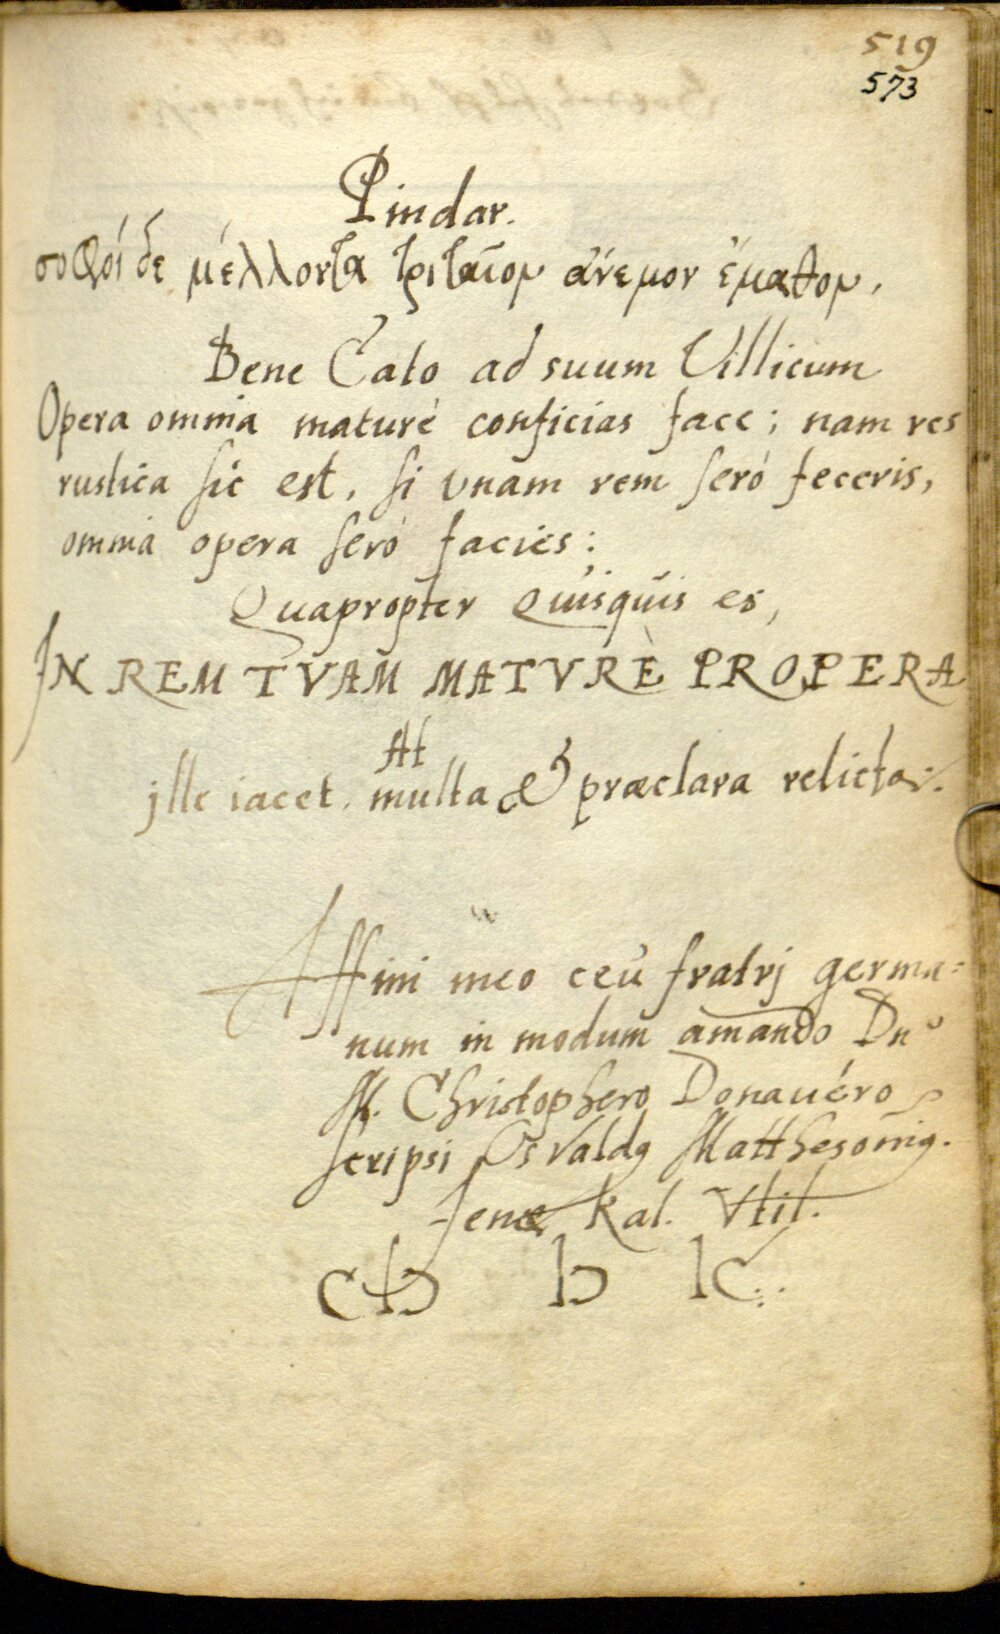 519
573
Pindar.
σοφοί δε μέλλοντα τριταῖον ἀνεμον ἔμαθον,
Bene Cato ad suum Villicum
Opera omnia maturè conficias face; nam res
rustica sic est, si vnam rem serò feceris,
omnia opera serò facies:
Quapropter Quisquis es,
IN REM TVAM MATVRÈ PROPERA
At
jlle iacet. multa & præclara relicta:
Affini meo ceu fratrj germa=
num in modum amando Dno
M. Christophero Donauéro
scripsi Osvaldg Matthesonig.
Jenæ Kal. Vtil.
CIƆ IƆ IC.